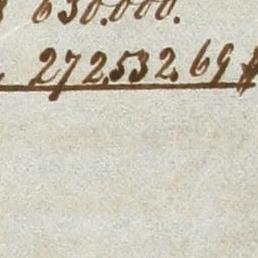 630.000.
272.532.69